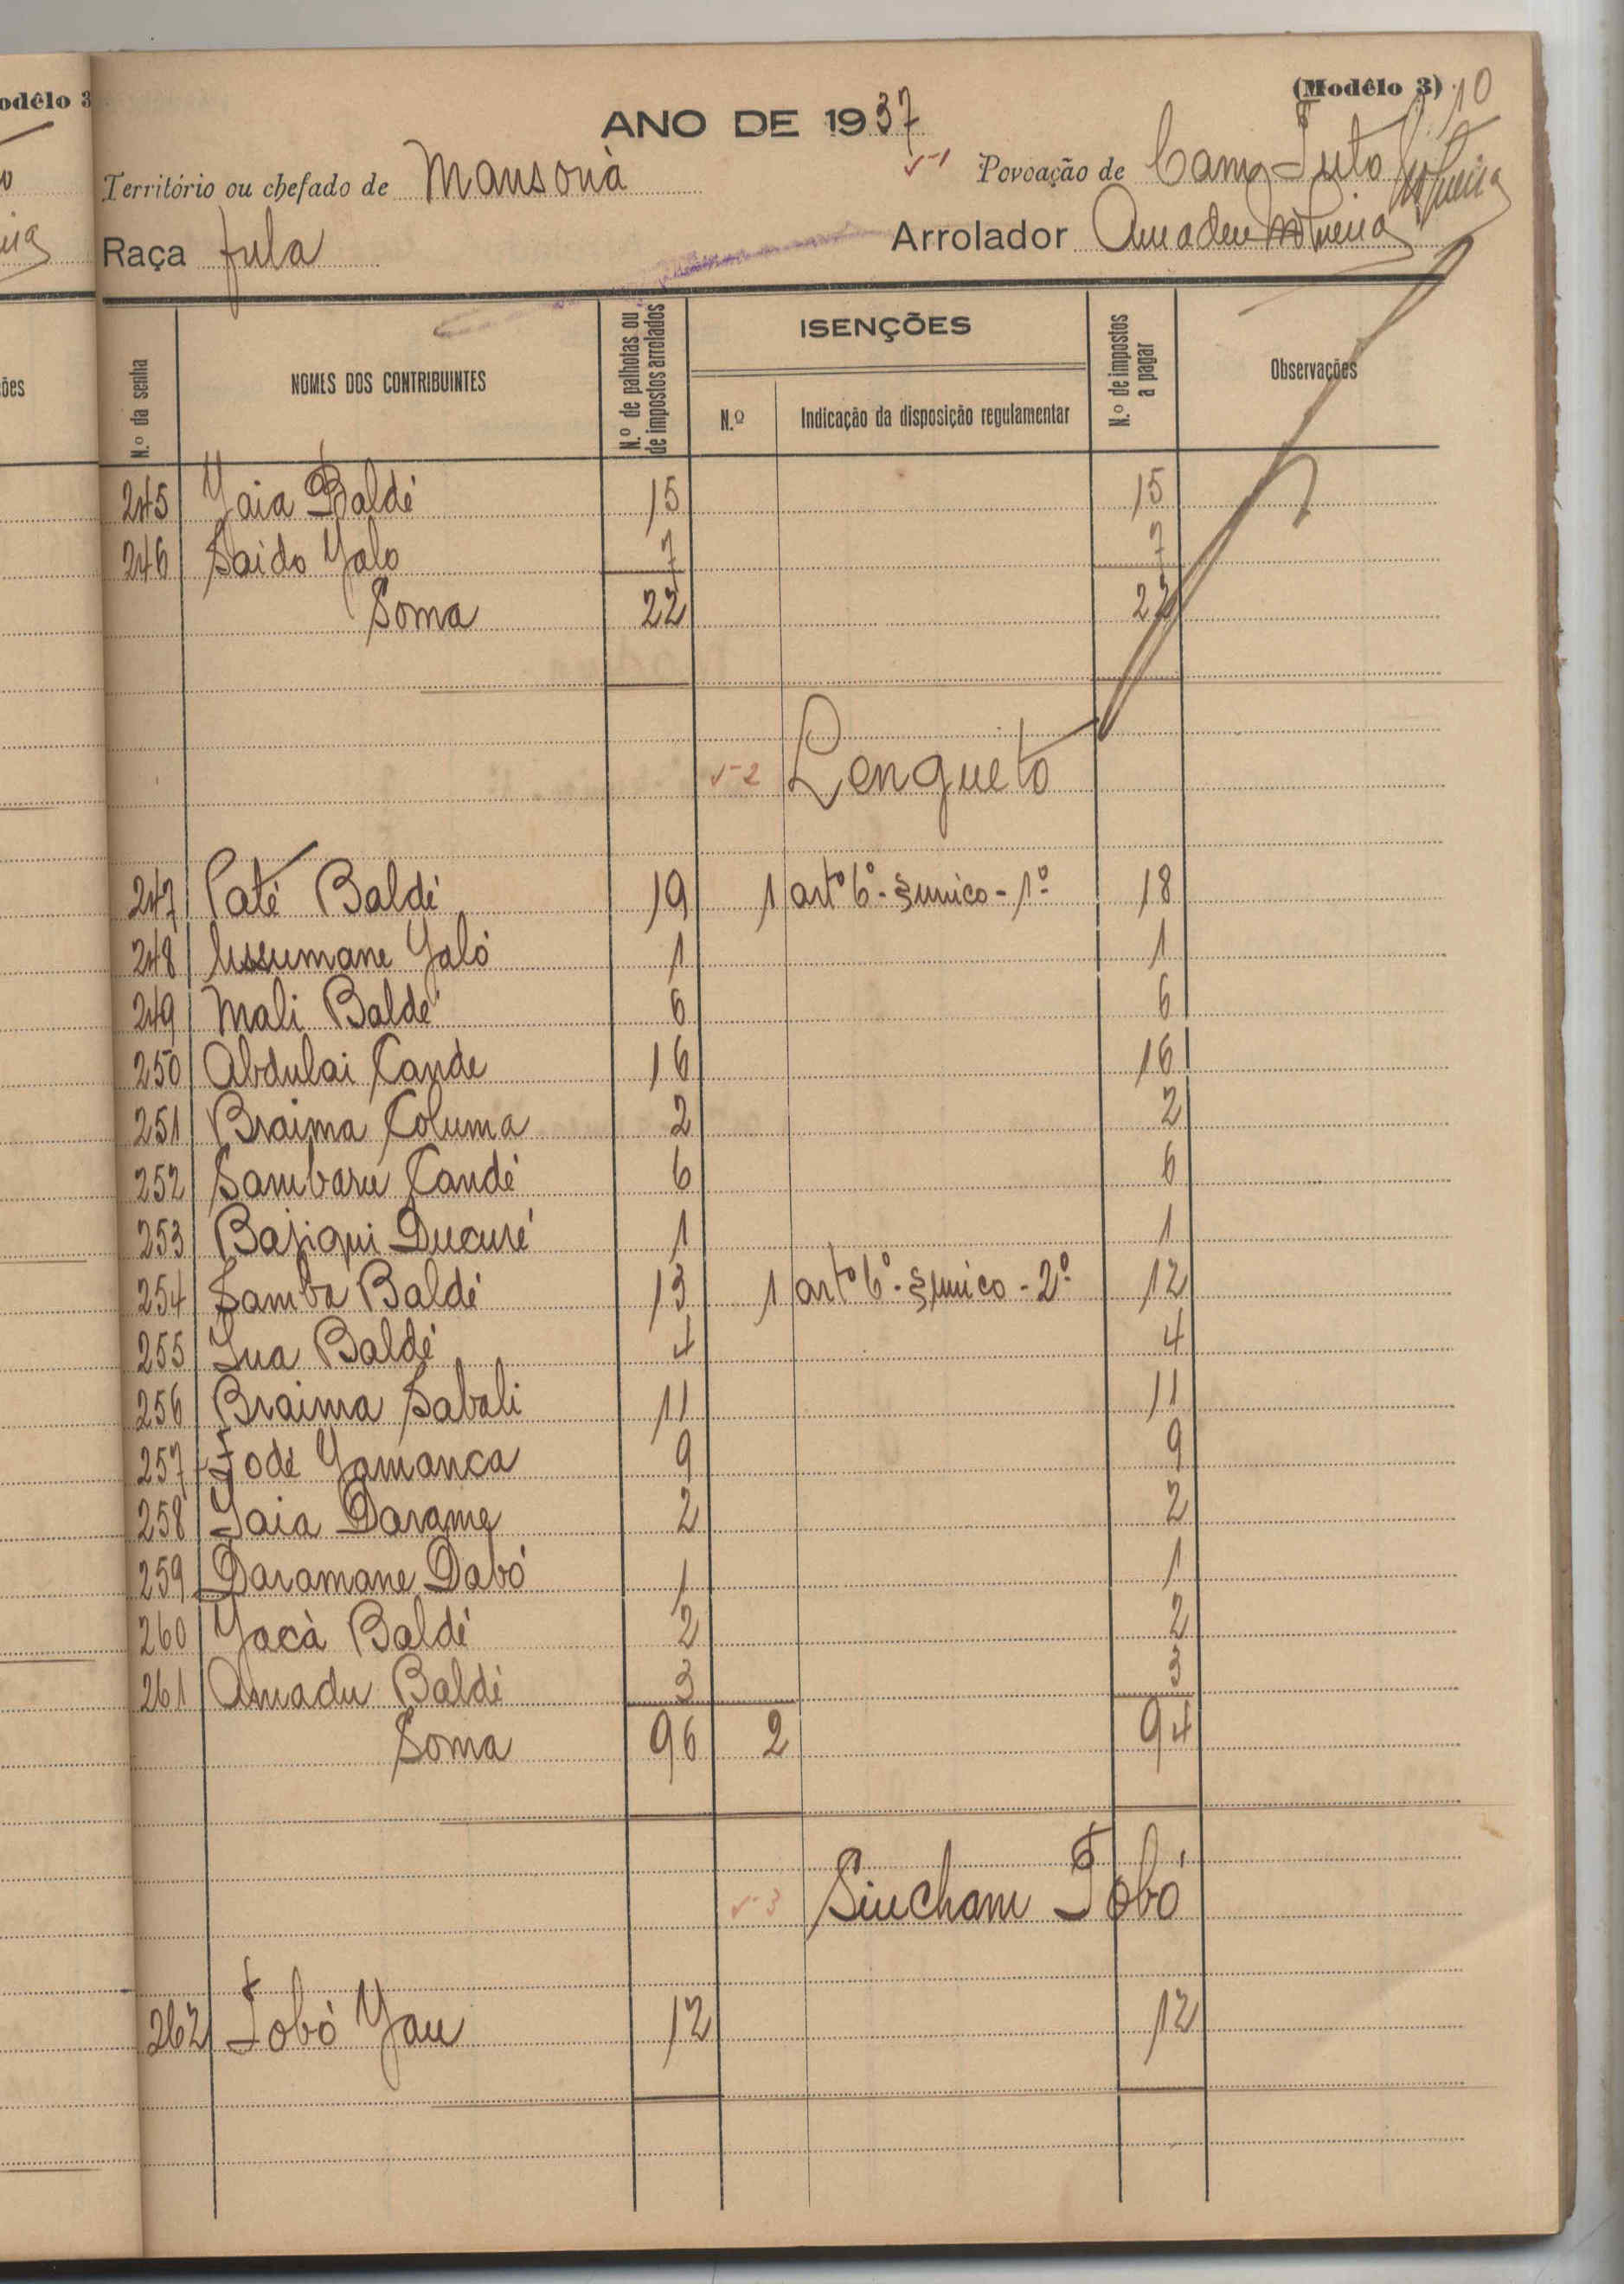 (Modêlo 3) 10
ANO DE 1937
Território ou chefado de Mansonà
v-1 Povoação de Camq Futo
Raça fula
Arrolador Amadeu
N.º da senha
NOMES DOS CONTRIBUINTES
N.º de palhotas ou de impostos arrolados
ISENÇÕES
N.º
Indicação da disposição regulamentar
N.º de impostos a pagar
Observações
245 Yaia Baldé 15 15
246 Saido Yalo 7 7
Soma 22 22
v-2 Lengueto
247 Paté Baldé 19 1 artº 6º - § unico - 1º 18
248 Ussumane Yaló 1 1
249 Mali Baldé 6 6
250 Abdulai Cande 16 16
251 Braima Columa 2 2
252 Sambaru Candé 6 6
253 Bajiqui Ducuré 1 1
254 Samba Baldé 13 1 artº 6º - § unico - 2º 12
255 Iua Baldé 4 4
256 Braima Sabali 11 11
257 Fodé Yamanca 9 9
258 Yaia Darame 2 2
259 Daramane Dabó 1 1
260 Yacà Baldé 2 2
261 Amadu Baldé 3 3
Soma 96 2 94
v-3 Sincham Tobó
262 Tobó Yau 12 12
odêlo 3
ões